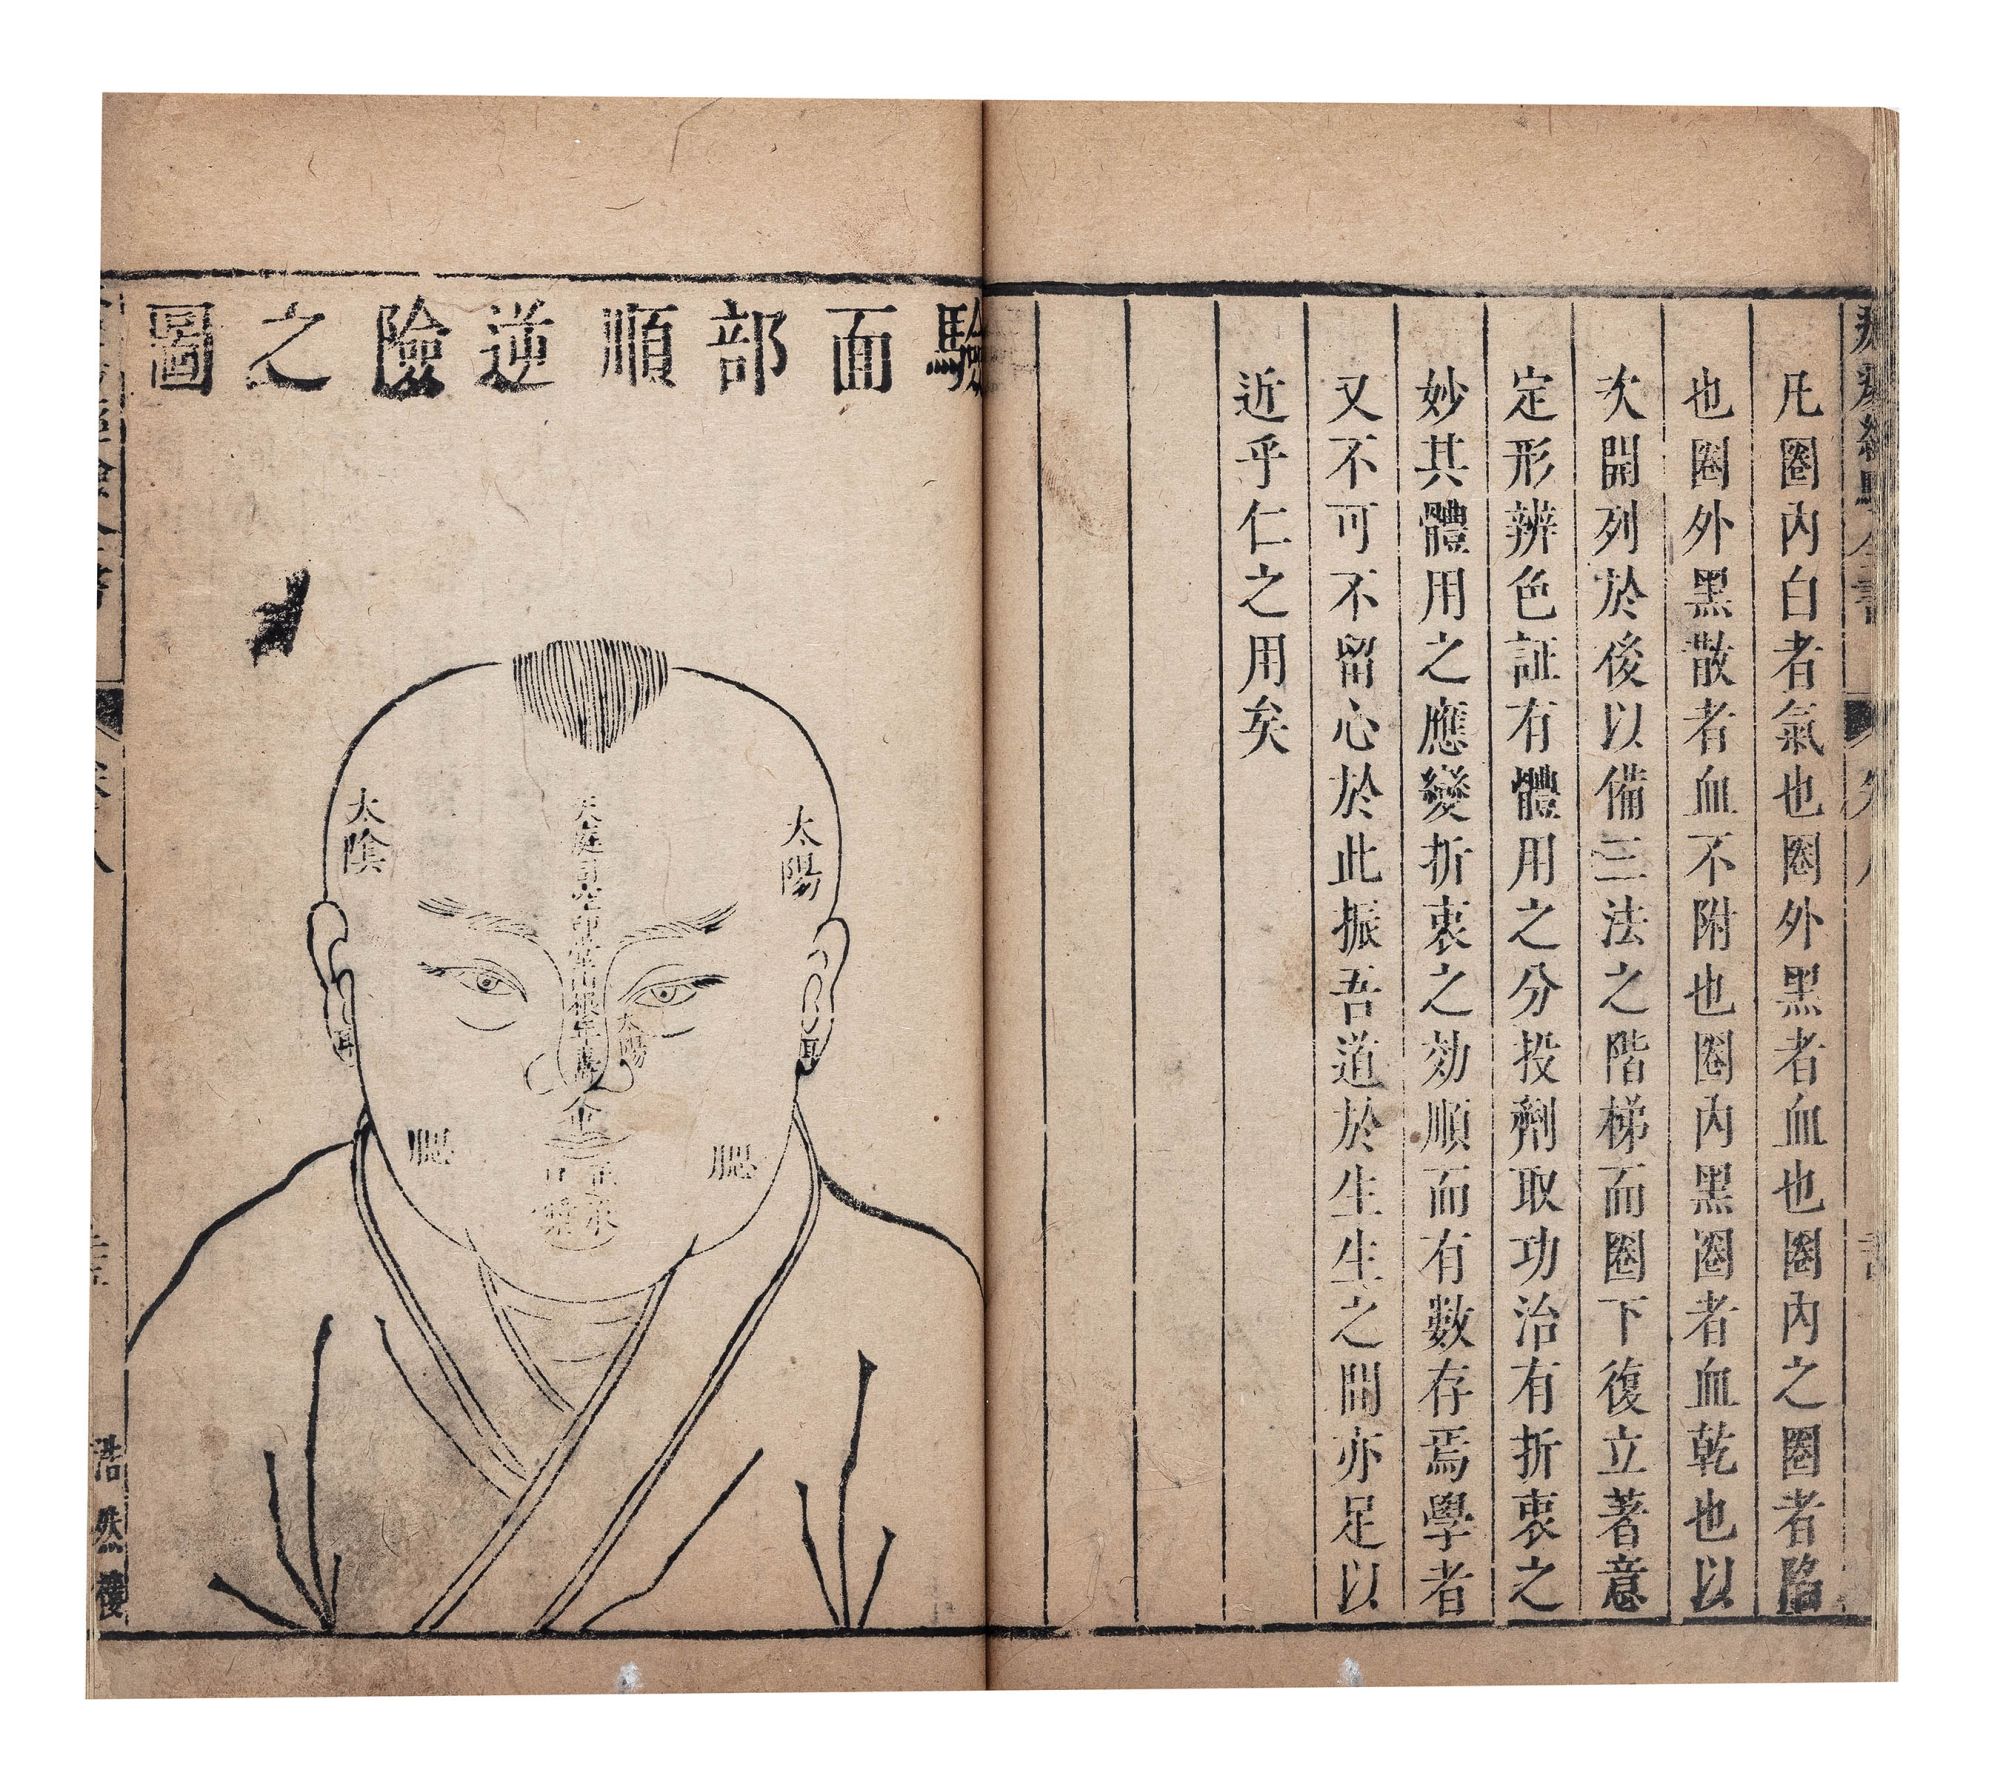 凡圈內白者氣也圈外黑者血也圈內之圈者陷
也圈外黑散者血不附也圈內黑圈者血乾也以
次開列於後以備三法之階梯而圈下復立著意
定形辨色証有體用之分投劑取功治有折衷之
妙其體用之應變折衷之効順而有數存焉學者
又不可不留心於此振吾道於生生之間亦足以
近乎仁之用矣
驗面部順逆險之圖
太陽
太陰
天庭司空印堂山根年壽
太陽
耳
耳
腮
腮
正口
承漿
浩然樓